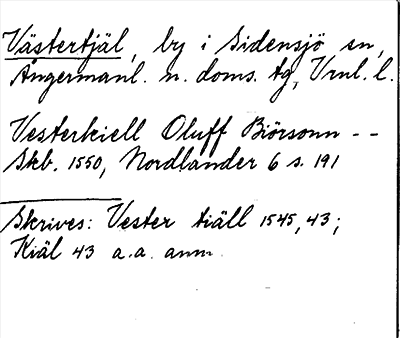 Västertjäl, by i Sidensjö sn,
Ångermanl. n. doms. tg, Vrnl. l.
Vesterkiell Oluff Biörsonn - -
Skb. 1550, Nordlander 6 s. 191
Skrives: Vester tiäll 1545, 43;
Kiäl 43 a.a. anm.